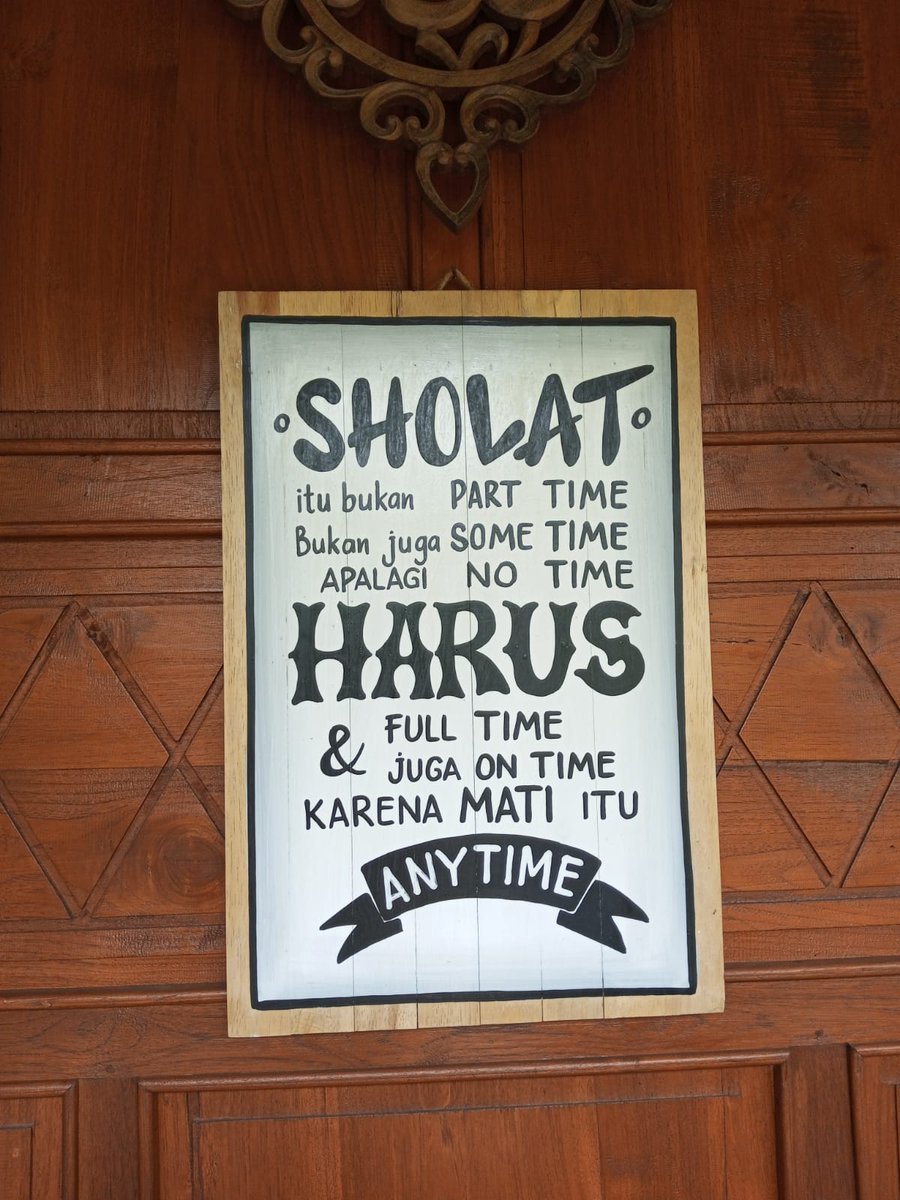 SHOLAT
itu bukan PART TIME
Bukan juga SOME TIME
APALAGI NO TIME
HARUS
& FULL TIME
JUGA ON TIME
KARENA MATI ITU
ANYTIME